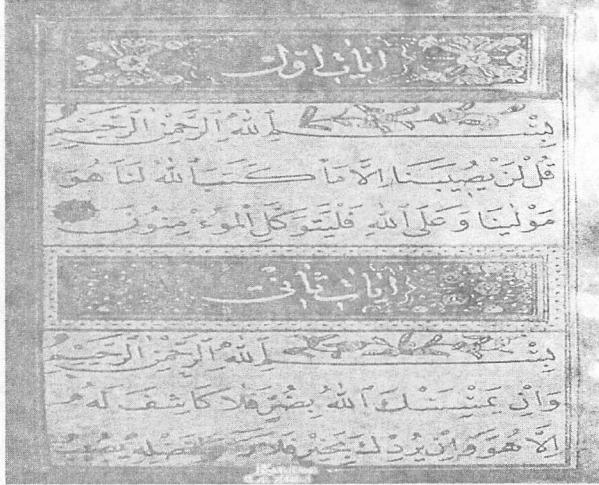 آیات اول
بِسْمِ اللهِ الرَّحْمٰنِ الرَّحِيْمِ
قُلْ لَنْ يُصِيبَنَا اِلَّا مَا كَتَبَ اللهُ لَنَا هُوَ
مَوْلٰينَا وَعَلَى اللهِ فَلْيَتَوَكَّلِ الْمُؤْمِنُونَ
بِسْمِ اللهِ الرَّحْمٰنِ الرَّحِيْمِ
وَاِنْ يَمْسَسْكَ اللهُ بِضُرٍّ فَلَا كَاشِفَ لَهُ
اِلَّا هُوَ وَاِنْ يُرِدْكَ بِخَيْرٍ فَلَا لِفَضْلِهِ